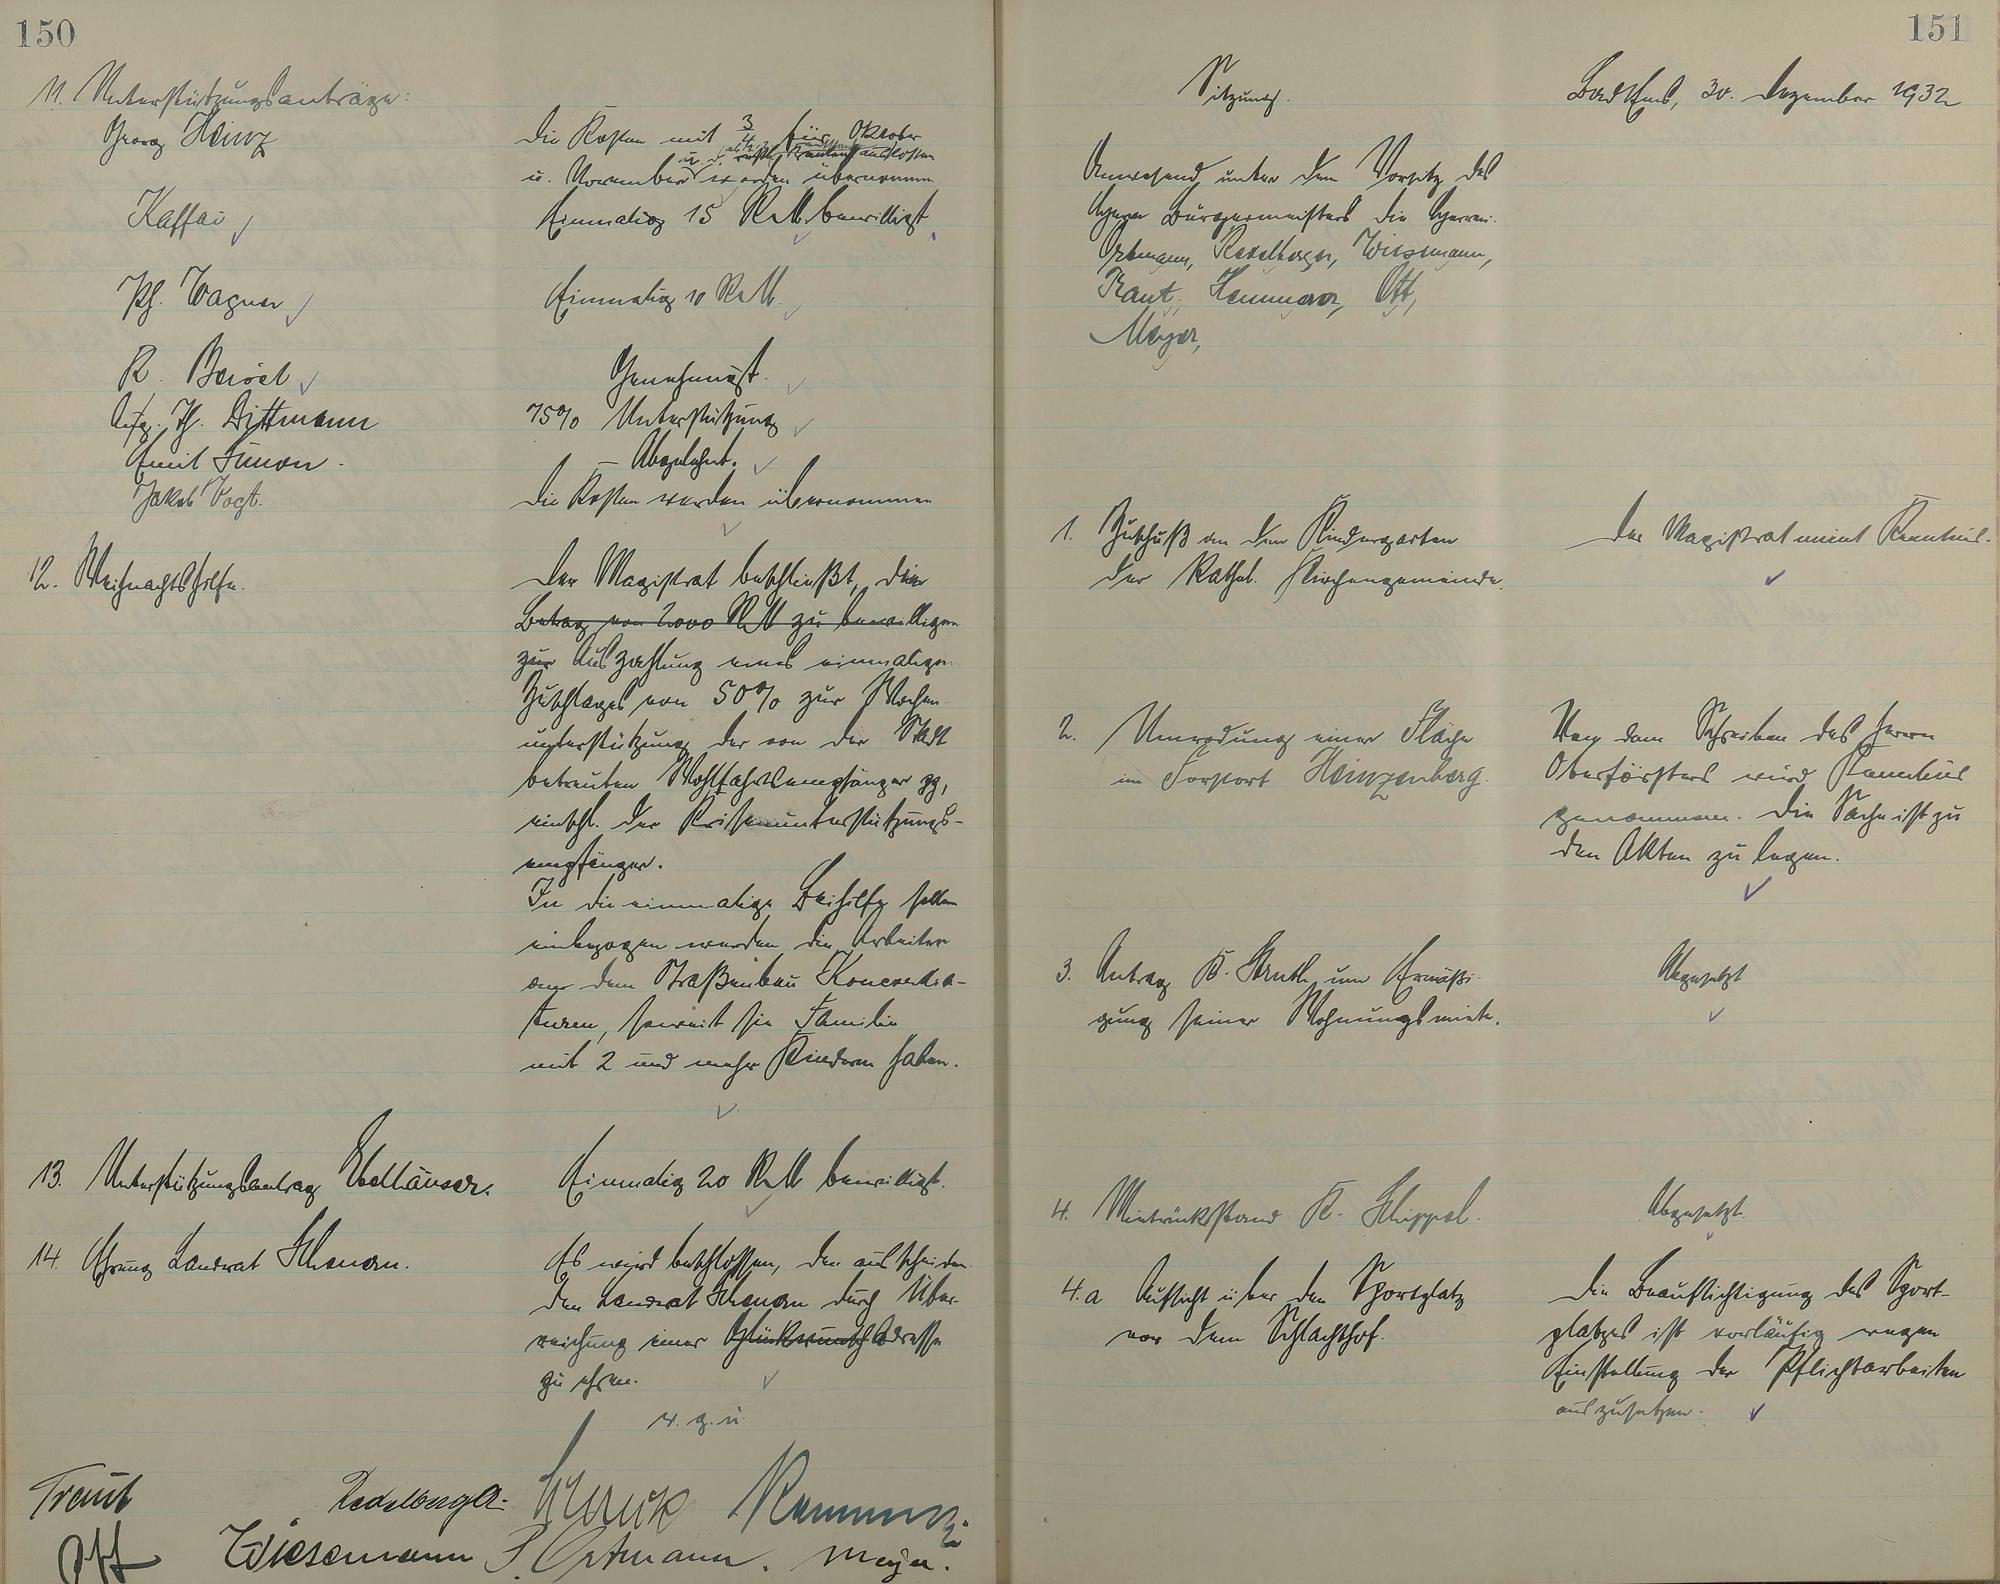 150
11. Unterstützungsanträge:
Georg Heinz
Die Kosten mit 3/4 für Oktober
u. November werden übernommen
Kaffai
Einmalig 15 RM. bewilligt.
Ph. Wagner
Einmalig 10 RM.
R.
Genehmigt.
Th. Dittmann
75% Unterstützung
Emil Simon.
– Abgelehnt.
Jakob Vogt.
Die Kosten werden übernommen
12. Weihnachtshilfe.
Der Magistrat beschließt, die
Betrag von 2000 RM zu bewilligen
zur Auszahlung eines einmaligen
Zuschlages von 50% zur Wochen
unterstützung der von der Stadt
betreuten Wohlfahrtsempfänger pp,
einschl. der Krisenunterstützungs-
empfänger.
In die einmalige Beihilfe sollen
einbezogen werden die Arbeiter
an dem Straßenbau Koncordia-
turm, soweit sie Familie
mit 2 und mehr Kindern haben.
13. Unterstützungsantrag Edelhäuser.
Einmalig 20 RM bewilligt.
14. Ehrung Landrat Scheuern.
Es wird beschlossen, den ausscheiden-
den Landrat Scheuern durch Über-
reichung einer Glückwunsch Adresse
zu ehren.
v. g. u.
Traut Redelberger
Ott Wiesemann P. Ortmann. Meyer.
151
Sitzung.
Bad Ems, 30. Dezember 1932
Anwesend unter dem Vorsitz des
Herrn Bürgermeisters die Herren:
Ortmann, Redelberger, Wiesemann,
Traut, Hemmerer, Ott,
Meyer,
1. Zuschuß an den Kindergarten
der Kathol. Kirchengemeinde.
Der Magistrat nimmt Kenntnis.
2. Umrodung einer Fläche
im Forstort Heinzenberg.
Von dem Schreiben des Herrn
Oberförsters wird Kenntnis
genommen. Die Sache ist zu
den Akten zu legen.
3. Antrag K. um Ermäßi-
gung seiner Wohnungsmiete.
Abgesetzt
4. Mietrückstand K. Schippel.
Abgesetzt.
4.a Aufsicht über den Sportplatz
vor dem Schlachthof.
Die Beaufsichtigung des Sport-
platzes ist vorläufig wegen
Einstellung der Pflichtarbeiten
auszusetzen.